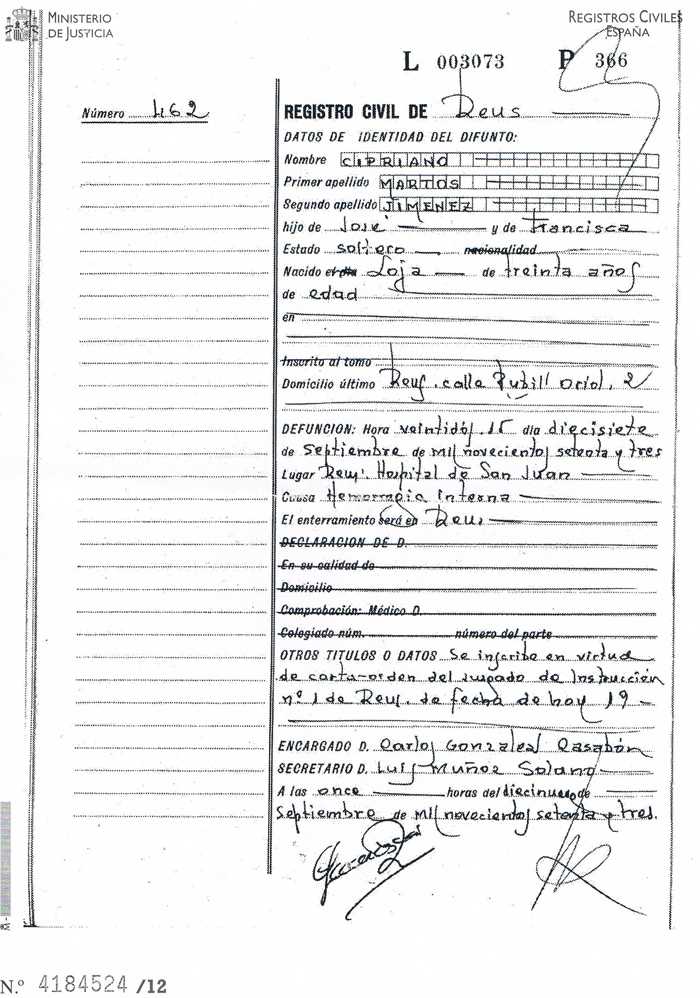 MINISTERIO
DE JUSTICIA
REGISTROS CIVILES
ESPAÑA
L 003073 P 366
Número 462
REGISTRO CIVIL DE Reus
DATOS DE IDENTIDAD DEL DIFUNTO:
Nombre CIPRIANO
Primer apellido MARTOS
Segundo apellido JIMENEZ
hijo de José y de Francisca
Estado soltero nacionalidad
Nacido el día Loja de treinta años
de edad
en
Inscrito al tomo
Domicilio último Reus, calle Pubill Oriol, 2
DEFUNCION: Hora veintidós, 15 día diecisiete
de septiembre de mil novecientos setenta y tres
Lugar Reus. Hospital de San Juan
Causa Hemorragia interna
El enterramiento será en Reus
DECLARACION DE D.
En su calidad de
Domicilio
Comprobación: Médico D.
Colegiado núm. número del parte
OTROS TITULOS O DATOS Se inscribe en virtud
de carta-orden del Juzgado de Instrucción
nº 1 de Reus, de fecha de hoy 19
ENCARGADO D. Carlos González Casabón
SECRETARIO D. Luis Muñoz Solano
A las once horas del diecinueve de
septiembre de mil novecientos setenta y tres.
N.º 4184524 /12